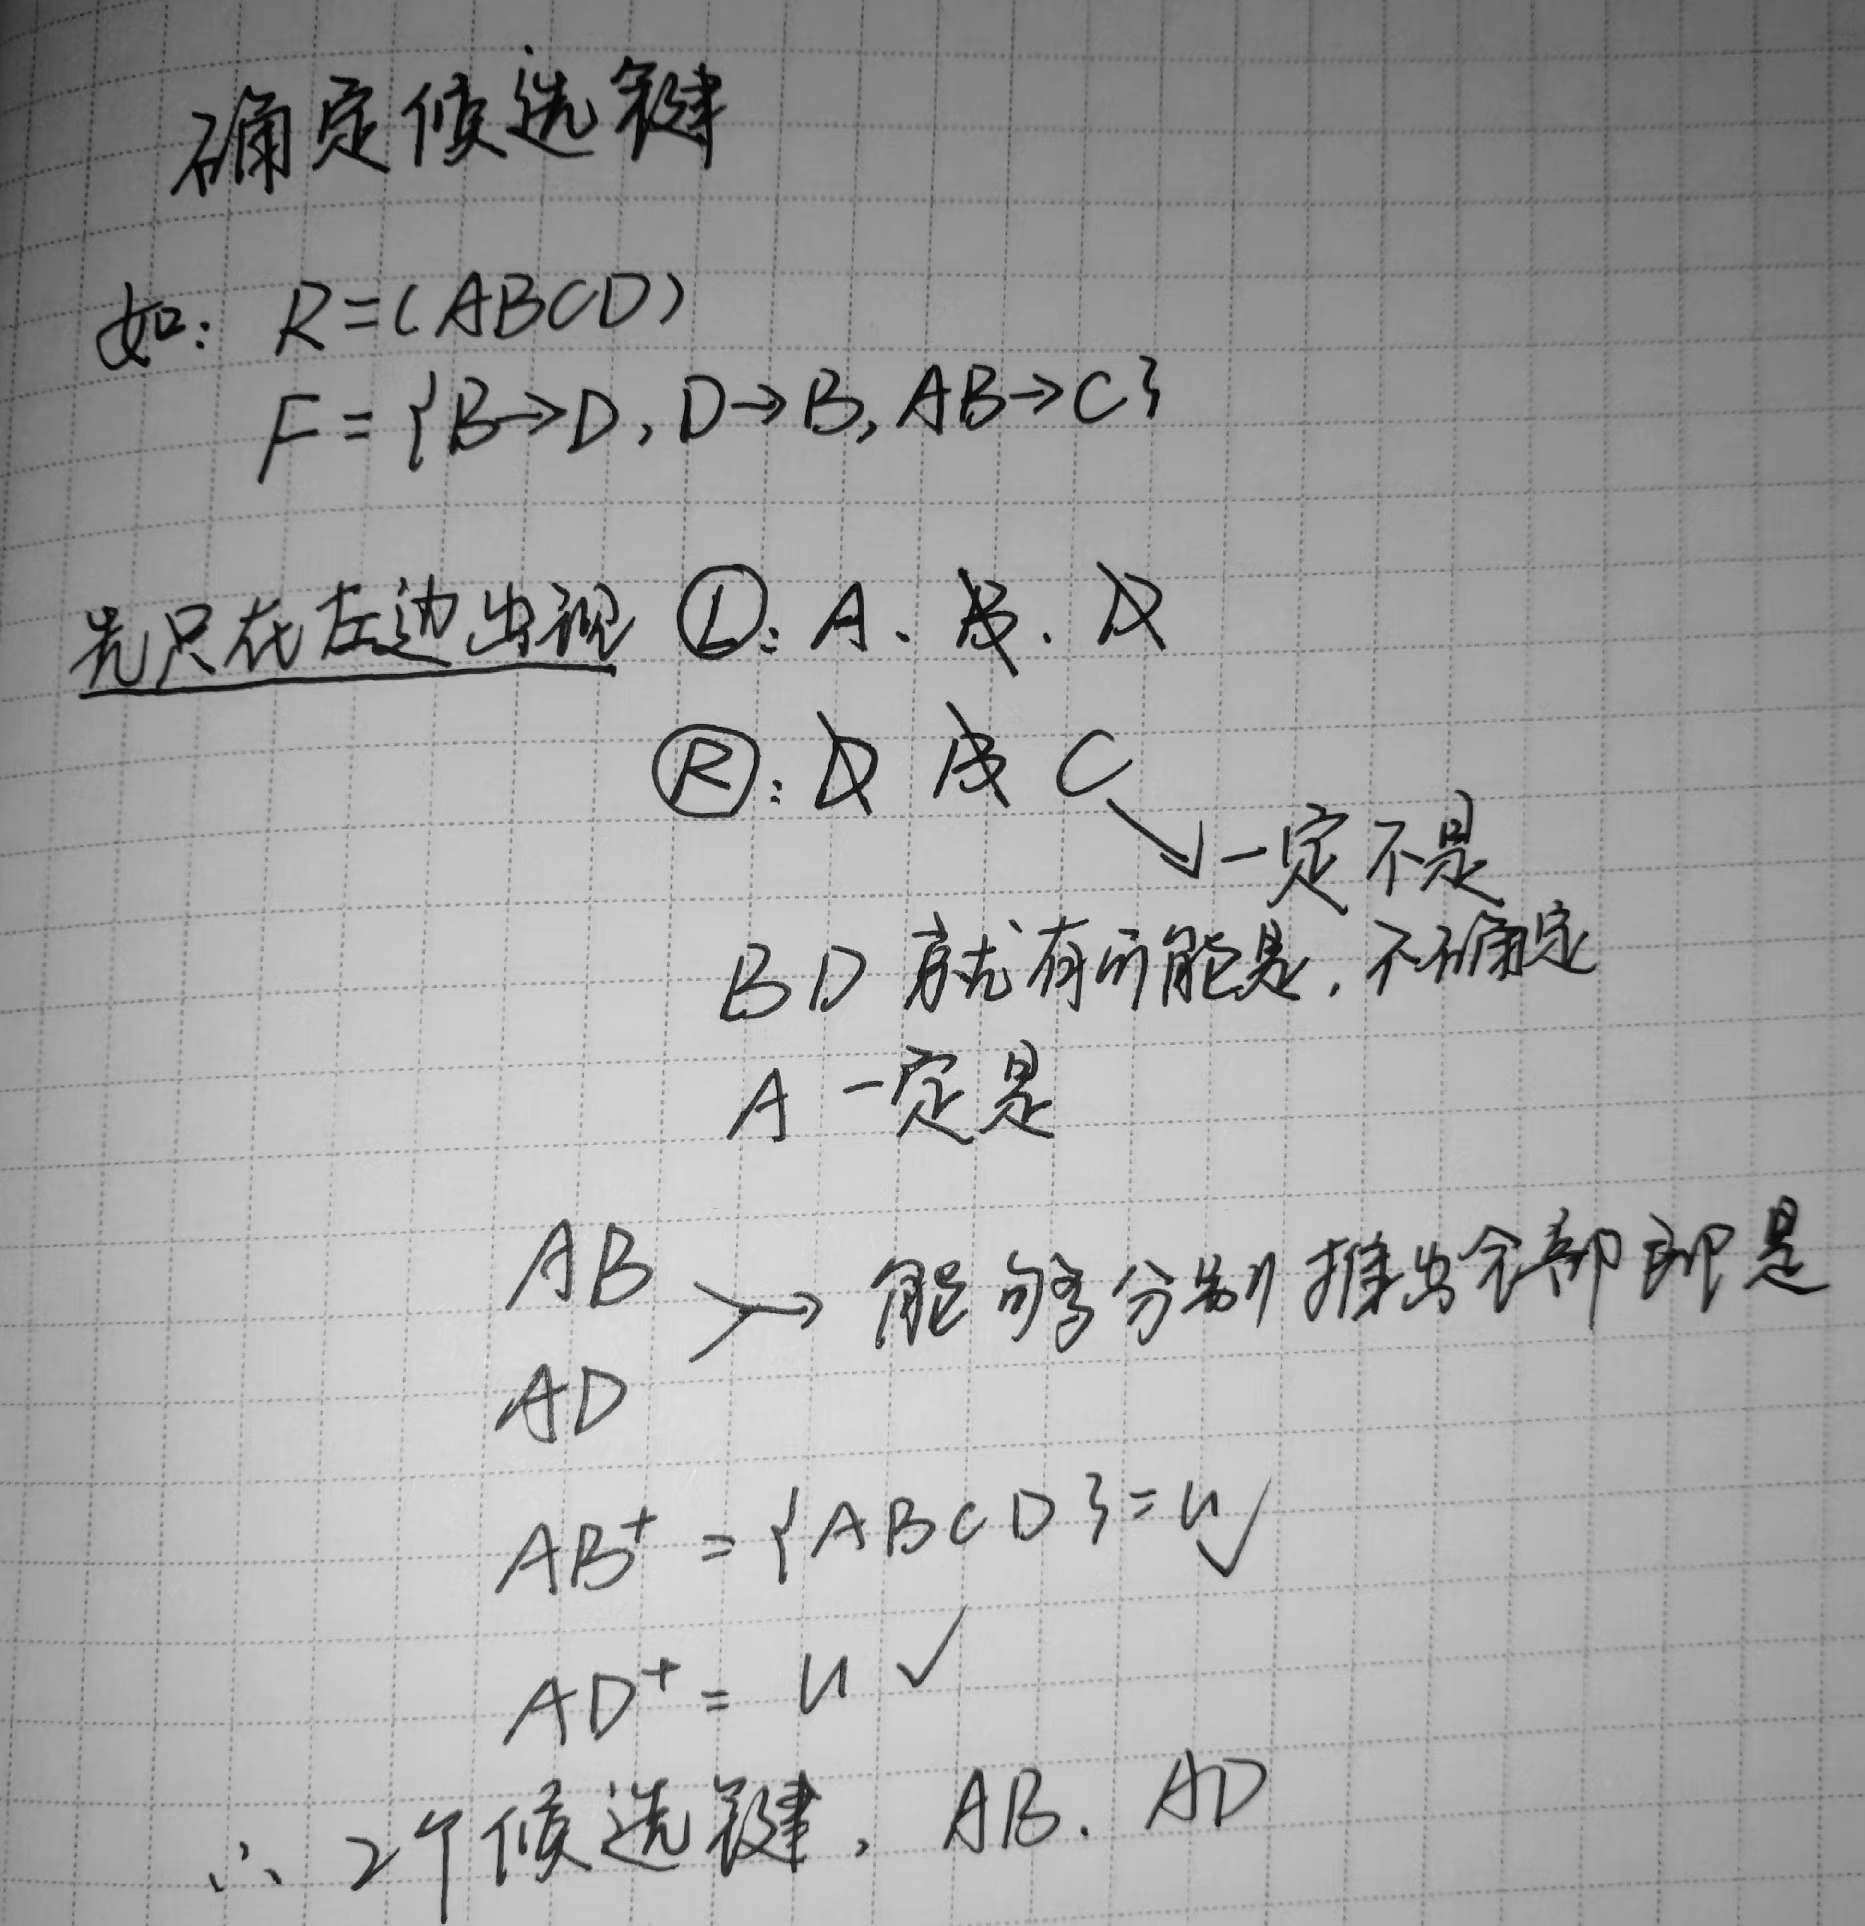 确定候选键
如: R=(ABCD)
F={B→D,D→B,AB→C}
先只在左边出现 Ⓛ: A、B、D
Ⓡ: D B C
一定不是
BD 就有可能是,不确定
A 一定是
AB
→ 能够分别推出全部即是
AD
AB⁺={ABCD}=U✓
AD⁺=U✓
∴ 2个候选键, AB、AD